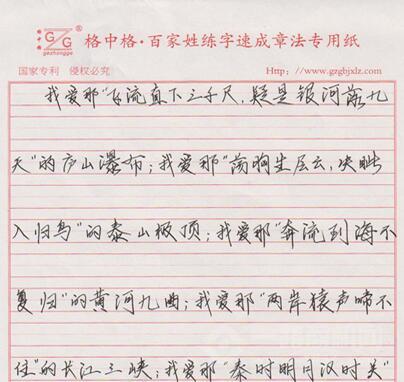 GZG
gezhongge
格中格·百家姓练字速成章法专用纸
国家专利 侵权必究 Http://www.gzgbjxlz.com
我爱那“飞流直下三千尺，疑是银河落九
天”的庐山瀑布；我爱那“荡胸生层云，决眦
入归鸟”的泰山极顶；我爱那“奔流到海不
复归”的黄河九曲；我爱那“两岸猿声啼不
住”的长江三峡；我爱那“秦时明月汉时关”